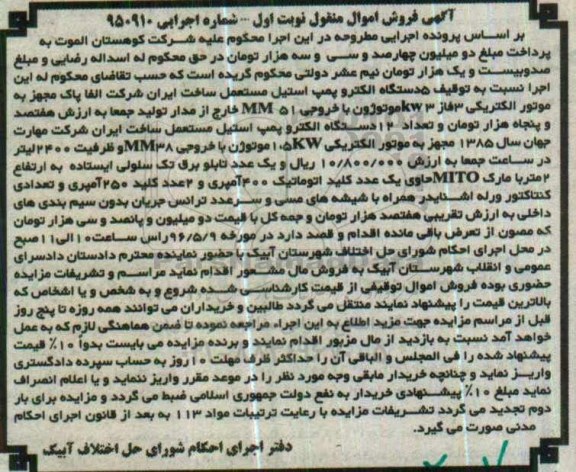 آگهی فروش اموال منقول نوبت اول --- شماره اجرایی ۹۵۰۹۱۰
بر اساس پرونده اجرایی مطروحه در این اجرا محکوم علیه شرکت کوهستان الموت به
پرداخت مبلغ دو میلیون چهارصد و سی و سه هزار تومان در حق محکوم له اسداله رضایی و مبلغ
صدوبیست و یک هزار تومان نیم عشر دولتی محکوم گریده است که حسب تقاضای محکوم له این
اجرا نسبت به توقیف ۵دستگاه الکترو پمپ استیل مستعمل ساخت ایران شرکت الفا پاک مجهز به
موتور الکتریکی ۳فاز ۳ kwموتوژون با خروجی ۵۱ MM خارج از مدار تولید جمعا به ارزش هفتصد
و پنجاه هزار تومان و تعداد ۱۲دستگاه الکترو پمپ استیل مستعمل ساخت ایران شرکت مهارت
جهان سال ۱۳۸۵ مجهز به موتور الکتریکی ۱.۵KW موتوژن با خروجی ۳۸MMو ظرفیت ۲۴۰۰لیتر
در ساعت جمعا به ارزش ۱۰/۸۰۰/۰۰۰ ریال و یک عدد تابلو برق تک سلولی ایستاده به ارتفاع
۲متربا مارک MITOحاوی یک عدد کلید اتوماتیک ۴۰۰آمپری و ۲عدد کلید ۲۵۰آمپری و تعدادی
کنتاکتور ورله اشنایدر همراه با شیشه های مسی و سرعدد ترانس جریان بدون سیم بندی های
داخلی به ارزش تقریبی هفتصد هزار تومان و جمعه کل با قیمت دو میلیون و پانصد و سی هزار تومان
که مصون از تعرض باقی مانده اقدام و قصد دارد در مورخه ۹۶/۵/۹راس ساعت۱۰الی۱۱صبح
در محل اجرای احکام شورای حل اختلاف شهرستان آبیک با حضور نماینده محترم دادستان دادسرای
عمومی و انقلاب شهرستان آبیک به فروش مال مشعور اقدام نماید مراسم و تشریفات مزایده
حضوری بوده فروش اموال توقیفی از قیمت کارشناسی شده شروع و به شخص و یا اشخاص که
بالاترین قیمت را پیشنهاد نمایند منتقل می گردد طالبین و خریداران می توانند همه روزه تا پنج روز
قبل از مراسم مزایده جهت مزید اطلاع به این اجراء مراجعه نموده تا ضمن هماهنگی لازم که به عمل
خواهد آمد نسبت به بازدید از مال مزبور اقدام نمایند و برنده مزایده می بایست بدواً ۱۰٪ قیمت
پیشنهاد شده را فی المجلس و الباقی آن را حداکثر ظرف مهلت ۱۰روز به حساب سپرده دادگستری
واریز نماید و چنانچه خریدار مابقی وجه مورد نظر را در موعد مقرر واریز ننماید و یا اعلام انصراف
نماید مبلغ ۱۰٪ پیشنهادی خریدار به نفع دولت جمهوری اسلامی ضبط می گردد و مزایده برای بار
دوم تجدید می گردد تشریفات مزایده با رعایت ترتیبات مواد ۱۱۳ به بعد از قانون اجرای احکام
مدنی صورت می گیرد.
دفتر اجرای احکام شورای حل اختلاف آبیک